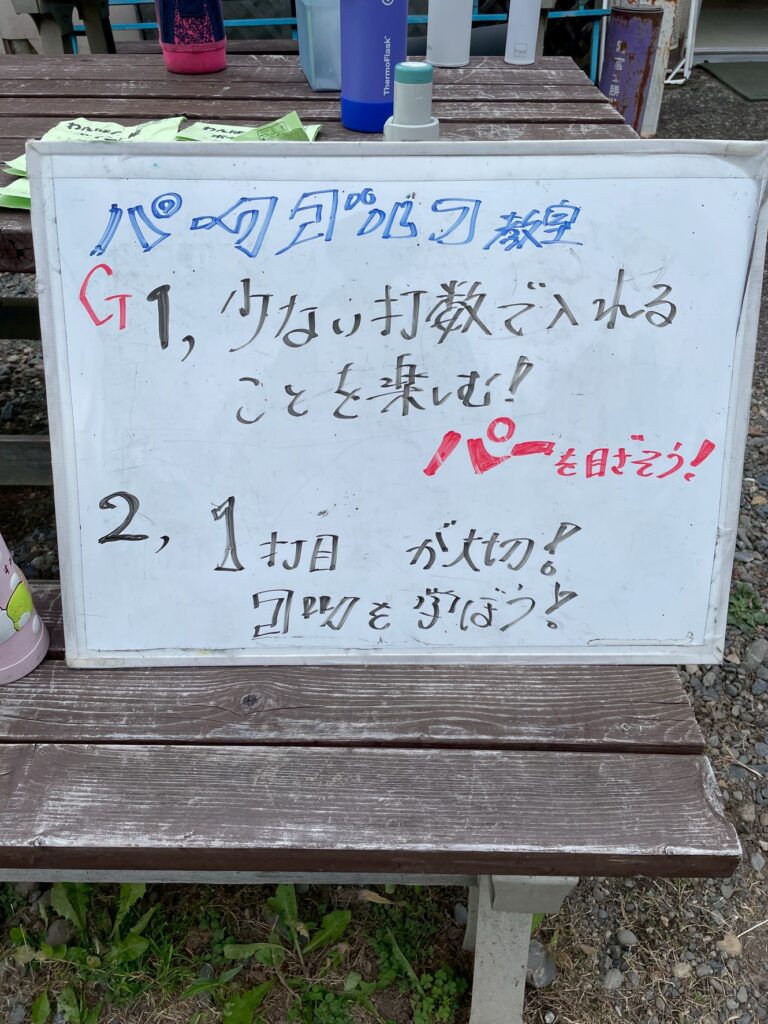 ThermoFlask
わんぱく
パークゴルフ教室
G 1, 少ない打数で入れる
ことを楽しむ!
パーを目ざそう!
2, 1打目 が大切!
コツを学ぼう!